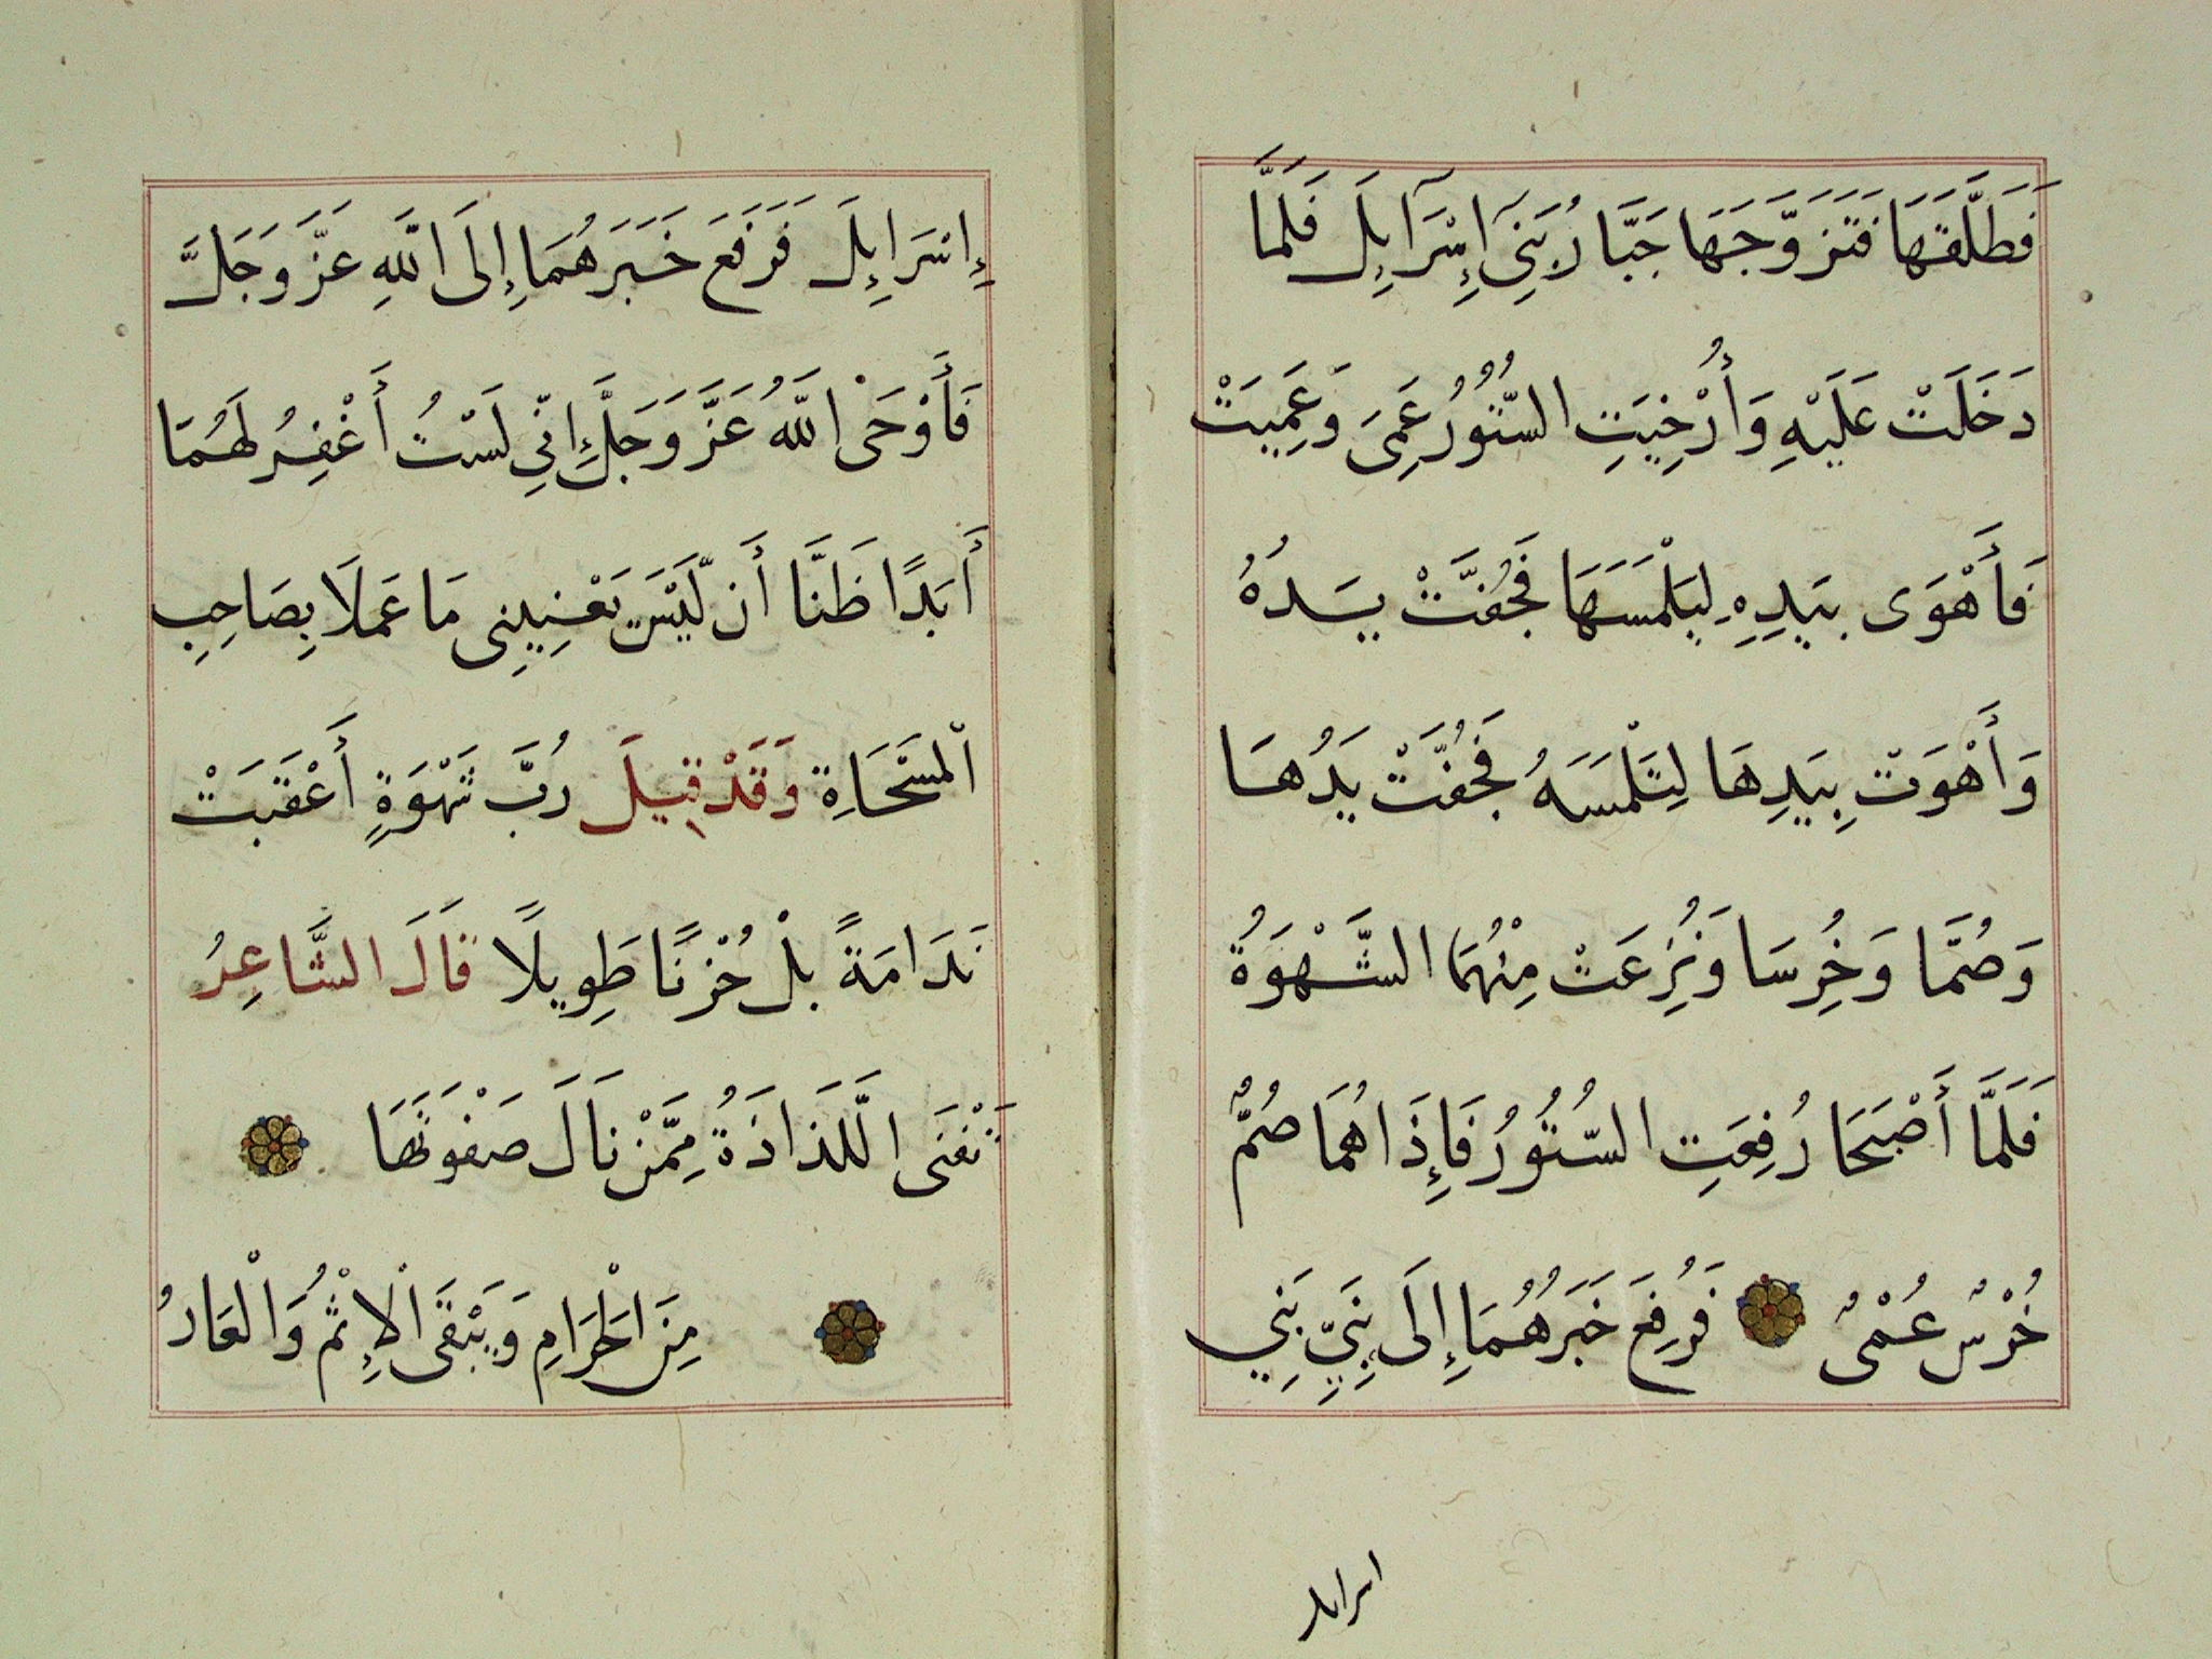 فَطَلَّقَهَا فَتَزَوَّجَهَا جَبَّارُ بَنِىٓ اِسْرَآءِيلَ فَلَمَّا
دَخَلَتْ عَلَيْهِ وَأُرْخِيَتِ السُّتُورُ عَمِىَ وَعَمِيَتْ
فَأَهْوَى بِيَدِهِ لِيَلْمَسَهَا فَجُفَّتْ يَدُهُ
وَأَهْوَتْ بِيَدِهَا لِتَلْمَسَهُ فَجُفَّتْ يَدُهَا
وَصُمَّا وَخُرِسَا وَنُزِعَتْ مِنْهُمَا الشَّهْوَةُ
فَلَمَّا أَصْبَحَا رُفِعَتِ السُّتُورُ فَإِذَا هُمَا صُمٌّ
خُرْسٌ عُمْىٌ فَرُفِعَ خَبَرُهُمَا إِلَى نَبِيِّ بَنِي
اسرايل
إِسْرَايِلَ فَرَفَعَ خَبَرَهُمَا إِلَى اللَّهِ عَزَّ وَجَلَّ
فَأَوْحَى اللَّهُ عَزَّ وَجَلَّ إِنِّي لَسْتُ أَغْفِرُ لَهُمَا
أَبَدًا ظَنَّا أَن لَّيْسَ بِعَيْنِى مَا عَمَلَا بِصَاحِبِ
الْمِسْحَاةِ وَقَدْ قِيلَ رُبَّ شَهْوَةٍ أَعْقَبَتْ
نَدَامَةً بلْ حُزْنًا طَوِيلًا قَالَ الشَّاعِرُ
تَفْنَى اللَّذَاذَةُ مِمَّنْ نَالَ صَفْوَتَهَا
مِنَ الْحَرَامِ وَيَبْقَى الْإِثْمُ وَالْعَارُ